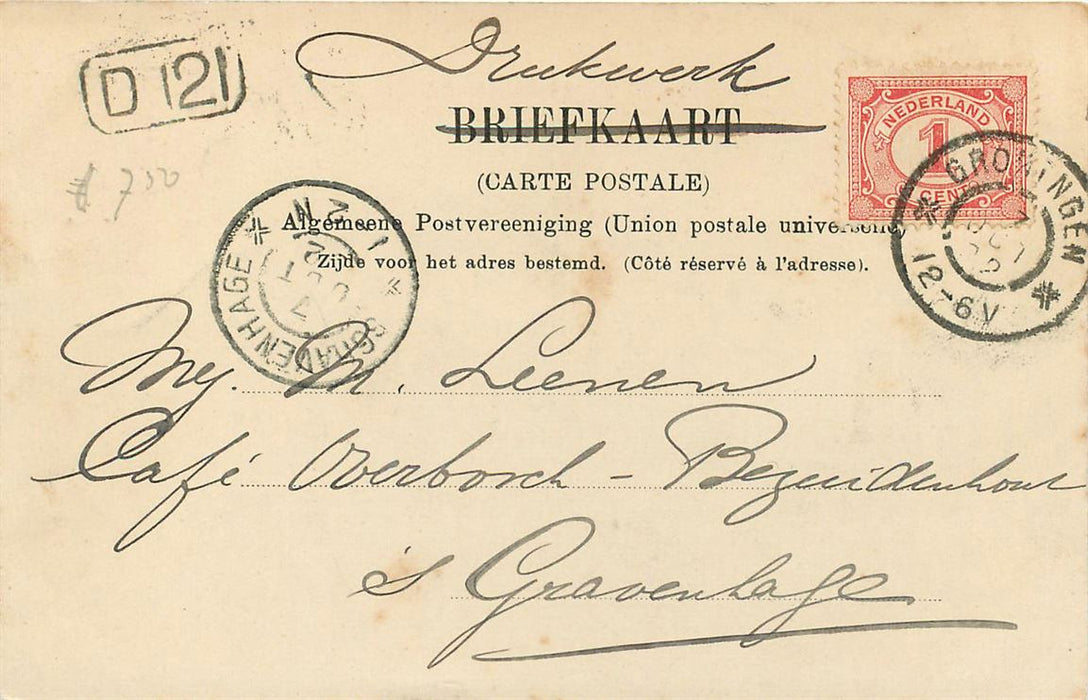 Drukwerk
D 121
BRIEFKAART
(CARTE POSTALE)
Algemeene Postvereeniging (Union postale universelle)
Zijde voor het adres bestemd. (Côté réservé à l'adresse).
NEDERLAND
1
CENT
GRONINGEN
12-6V
'SGRAVENHAGE
1-2N
Mej. M. Leenen
Café Overbosch - Bezuidenhout
's Gravenhage